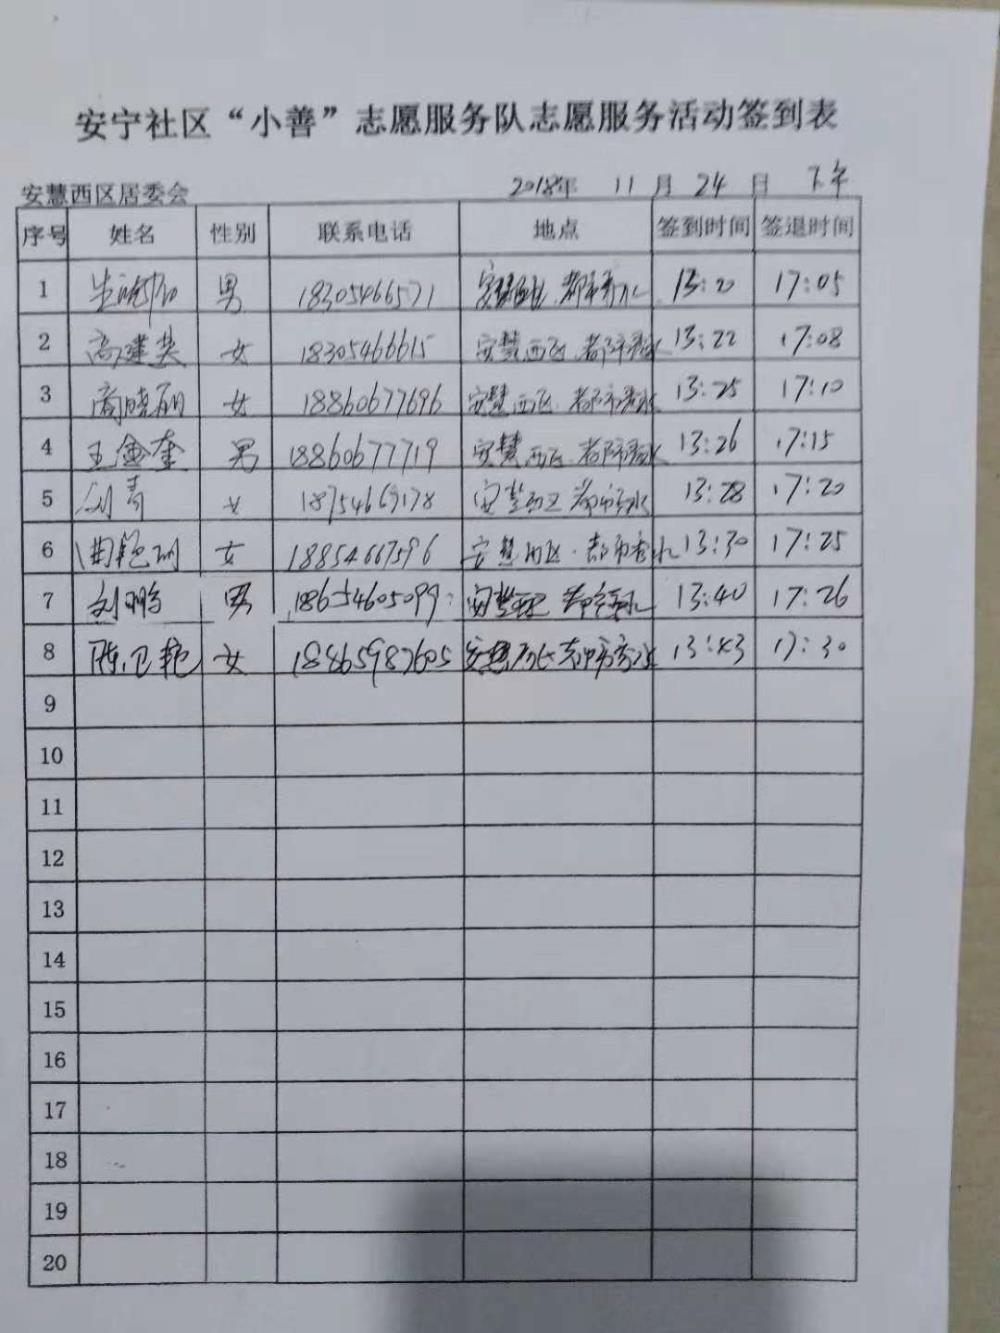 安宁社区“小善”志愿服务队志愿服务活动签到表
安慧西区居委会 2018年 11 月 24 日 下午
序号 姓名 性别 联系电话 地点 签到时间 签退时间
1 男 18305466571 安慧西区.都市秀水 13:20 17:05
2 高建英 女 18305466615 安慧西区.都市秀水 13:22 17:08
3 商晓丽 女 18860677696 安慧西区.都市秀水 13:25 17:10
4 王金奎 男 18860677719 安慧西区.都市秀水 13:26 17:15
5 刘青 女 18754669178 安慧西区 都市秀水 13:28 17:20
6 曲艳丽 女 18854667596 安慧西区.都市秀水 13:30 17:25
7 刘鹏 男 18654605099 安慧西区 都市秀水 13:40 17:26
8 陈卫艳 女 18865987605 安慧西区都市秀水 13:43 17:30
9
10
11
12
13
14
15
16
17
18
19
20